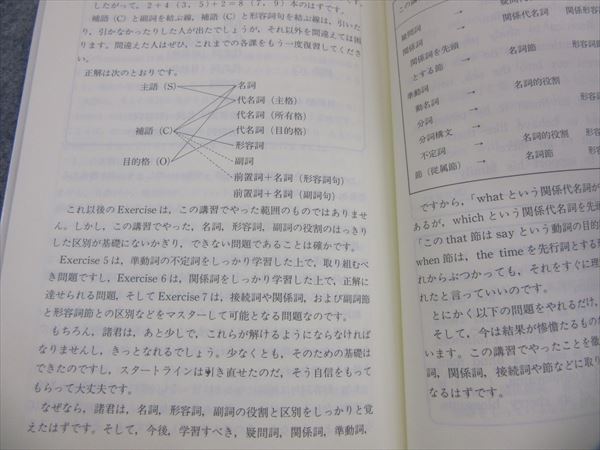 したがって，2＋4（3，5）＋2＝8（7，9）本のはずです。
補語（C）と副詞を結ぶ線，補語（C）と形容詞句を結ぶ線は，引いた
り，引かなかったりした人が出たでしょうが，それ以外を間違えては困
ります。間違えた人はぜひ，これまでの各課をもう一度復習してくださ
い。
正解は次のとおりです。
主語（S）
補語（C）
目的格（O）
名詞
代名詞（主格）
代名詞（所有格）
代名詞（目的格）
形容詞
副詞
前置詞＋名詞（形容詞句）
前置詞＋名詞（副詞句）
これ以後の Exercise は，この講習でやった範囲のものではありませ
ん。しかし，この講習でやった，名詞，形容詞，副詞の役割のはっきり
した区別が基礎にないかぎり，できない問題であることは確かです。
Exercise 5 は，準動詞の不定詞をしっかり学習した上で，取り組むべ
き問題ですし，Exercise 6 は，関係詞をしっかり学習した上で，正解に
達せられる問題，そして Exercise 7 は，接続詞や関係詞，および副詞節
と形容詞節との区別などをマスターして可能となる問題なのです。
もちろん，諸君は，あと少しで，これらが解けるようにならなければ
なりませんし，きっとなれるでしょう。少なくとも，そのための基礎は
できたのですし，スタートラインは引き直せたのだ，そう自信をもって
もらって大丈夫です。
なぜなら，諸君は，名詞，形容詞，副詞の役割と区別をしっかりと覚
えたはずです。そして，今後，学習すべき，疑問詞，関係詞，準動詞，
疑問詞 → 疑問代
関係詞 → 関係代名詞 関係形
関係詞を先頭
とする節 → 名詞節 形容詞節
準動詞
動名詞 → 名詞的役割
分詞 →
分詞構文 →
不定詞 → 名詞的役割 形容
節（従属節） → 名詞節 形容詞
ですから，「what という関係代名詞が
あるが，which という関係代名詞を先
「この that 節は say という動詞の目的
when 節は，the time を先行詞とする形
れからぶつかっても，それをすぐに理
れたと言っていいのです。
とにかく以下の問題をやるだけ，
そして，今は結果が惨憺たるもの
います。この講習でやったことを徹
詞，関係詞，接続詞や節などに取り
なるはずです。